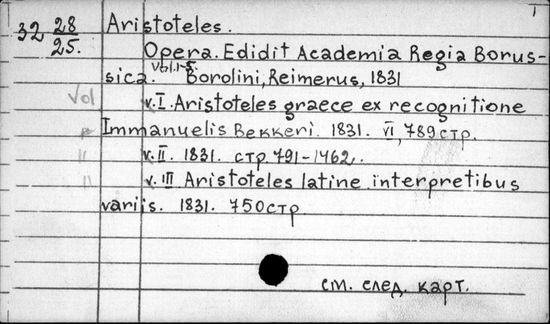 1
32 28/25. Aristoteles.
Opera. Edidit Academia Regia Borus-
sica. Vol.1-5. Borolini, Reimerus, 1831
Vol v. I. Aristoteles graece ex recognitione
Immanuelis Bekkeri. 1831. VI, 789 стр.
" v. II. 1831. стр. 791-1462.
" v. III Aristoteles latine interpretibus
variis. 1831. 750 стр
см. след. карт.